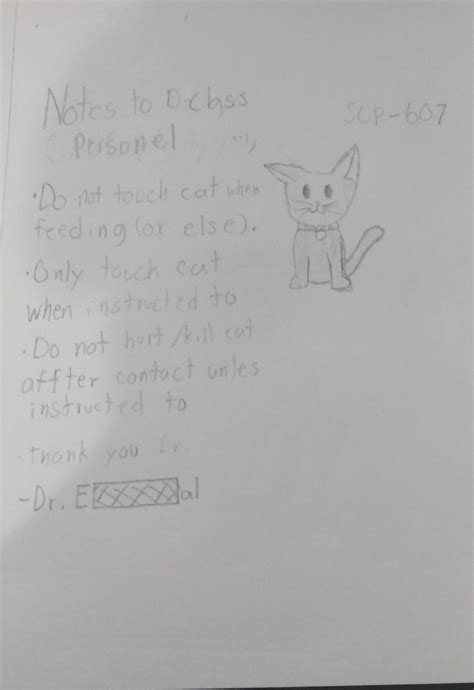 Notes to D-class
SCP-607
Personel
·Do not touch cat when
feeding (or else).
·Only touch cat
when instructed to
·Do not hurt/kill cat
affter contact unles
instructed to
·Thank you Dr.
-Dr. E al